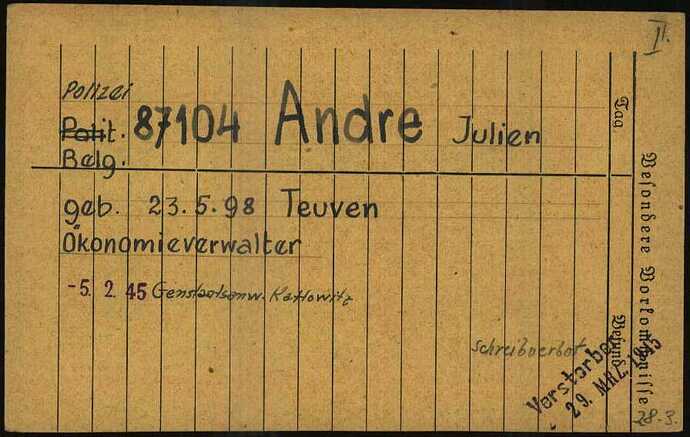 II.
Polizei
Polit. 87104 Andre Julien
Belg.
geb. 23.5.98 Teuven
Ökonomieverwalter
-5. 2. 45 Genstaatsanw. Kattowitz
Schreibverbot
Verstorben
29. MRZ. 1945
28.3.
Tag
Befund
Besondere Vorkommnisse